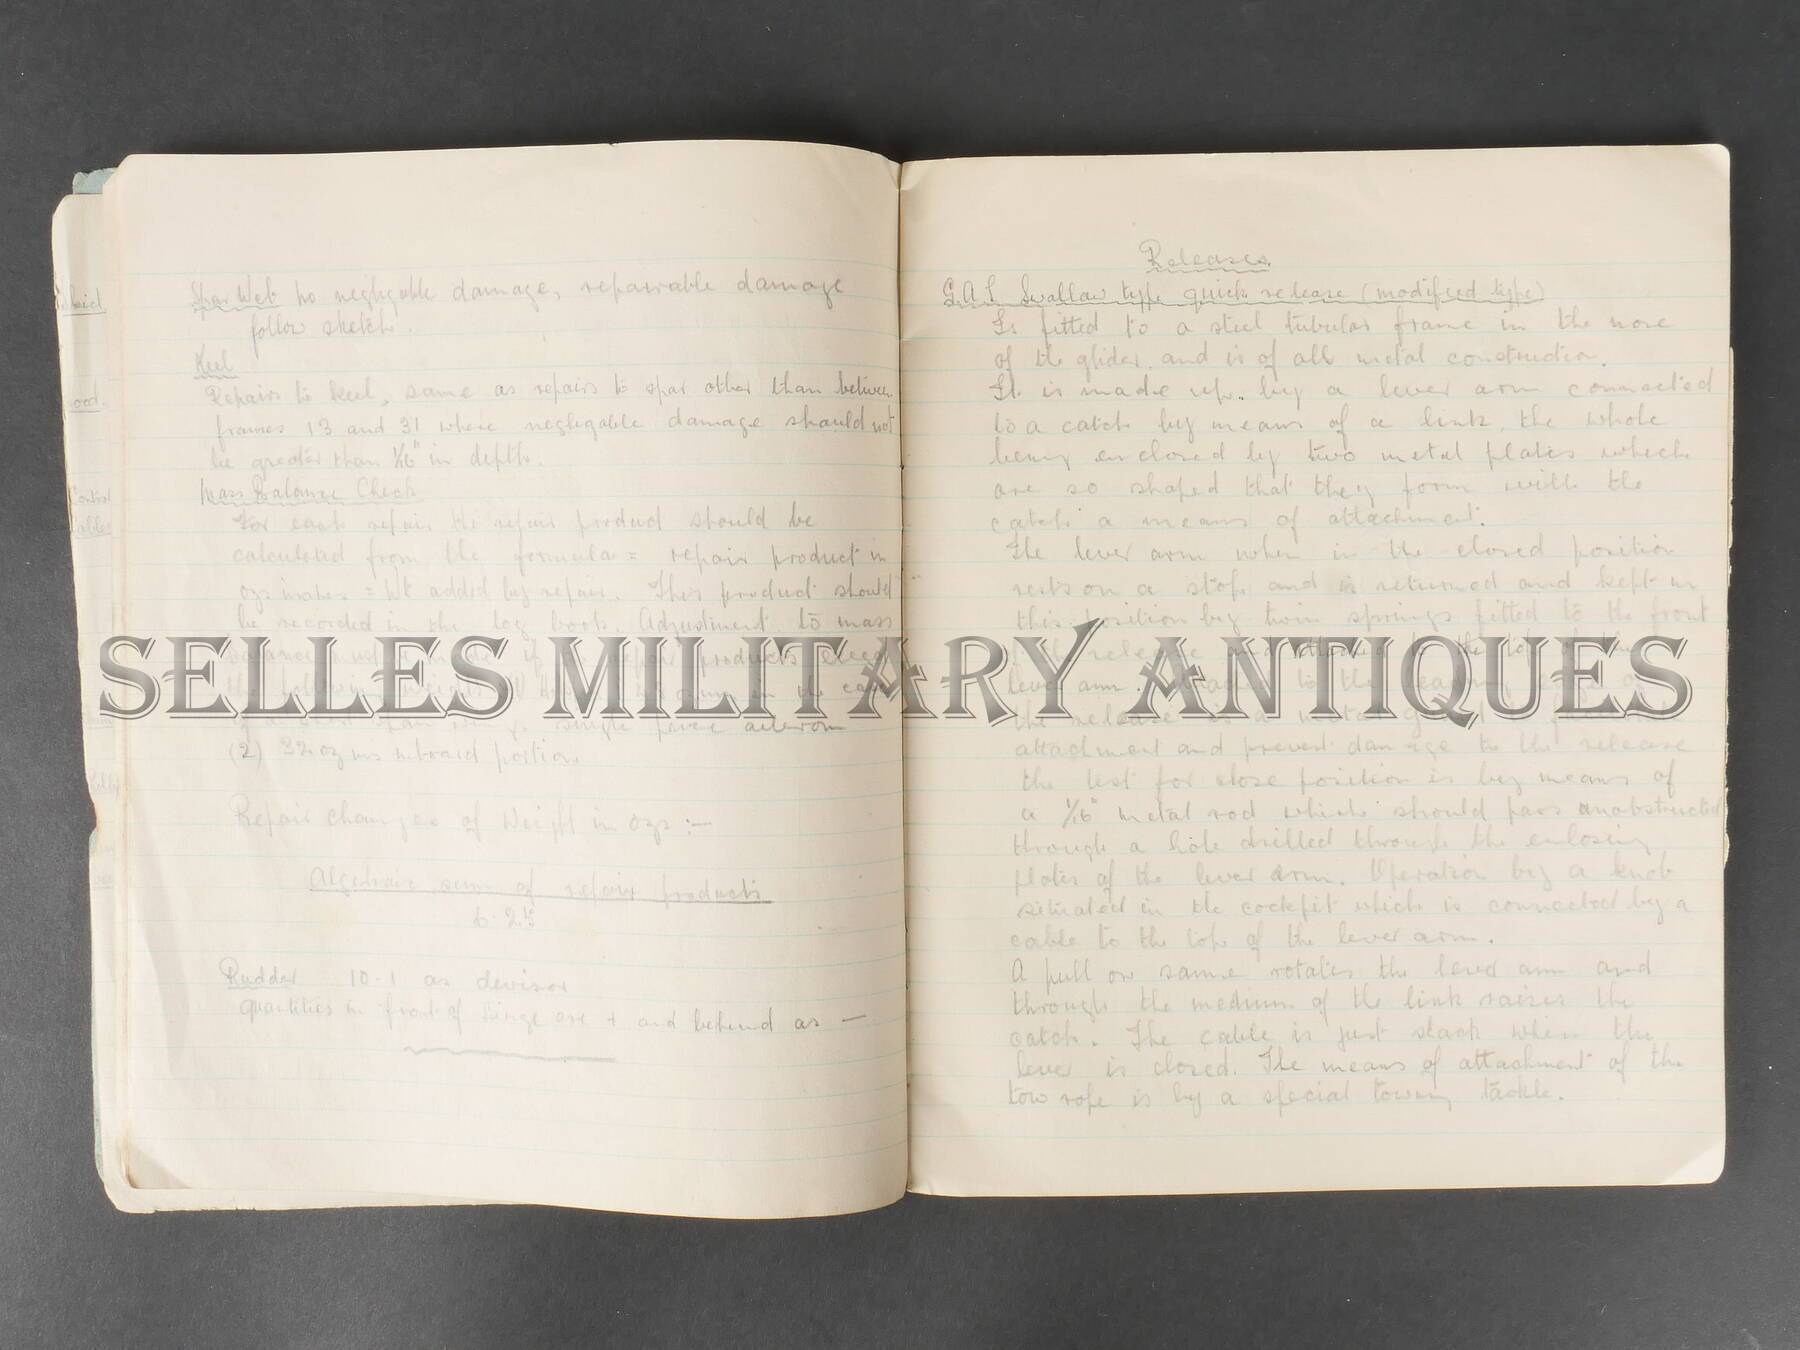 Spar Web no negligable damage, repairable damage
follow sketch.
Keel
Repairs to keel, same as repairs to spar other than between
frames 13 and 31 where negligable damage should not
be greater than 1/16" in depth.
Mass Balance Check
For each repair the repair product should be
calculated from the formula = repair product in
ozs inches = Wt added by repair. This product should
be recorded in the log book. Adjustment to mass
repair products
the following in the case
single piece aileron
(2) 32 ozs ins inboard portion
Repair changes of Weight in ozs :-
Algebraic sum of repair products
6.25
Rudder 10.1 as devisor
quantities in front of hinge are + and behind as —
Releases.
G.A.L Swallow type quick release (modified type)
Is fitted to a steel tubular frame in the nose
of the glider, and is of all metal construction.
It is made up. by a lever arm connected
to a catch by means of a link, the whole
being enclosed by two metal plates which
are so shaped that they form with the
catch a means of attachment.
The lever arm when in the closed position
rests on a stop and is returned and kept in
this position by twin springs fitted to the front
of the release and attached to the top of the
lever arm. to the leading edge of
the release is a metal guard
attachment and prevent damage to the release
the test for close position is by means of
a 1/16" metal rod which should pass unobstructed
through a hole drilled through the enclosing
plates of the lever arm. Operation by a knob
situated in the cockpit which is connected by a
cable to the top of the lever arm.
A pull on same rotates the lever arm and
through the medium of the link raises the
catch. The cable is just slack when the
lever is closed. The means of attachment of the
tow rope is by a special towing tackle.
SELLES MILITARY ANTIQUES